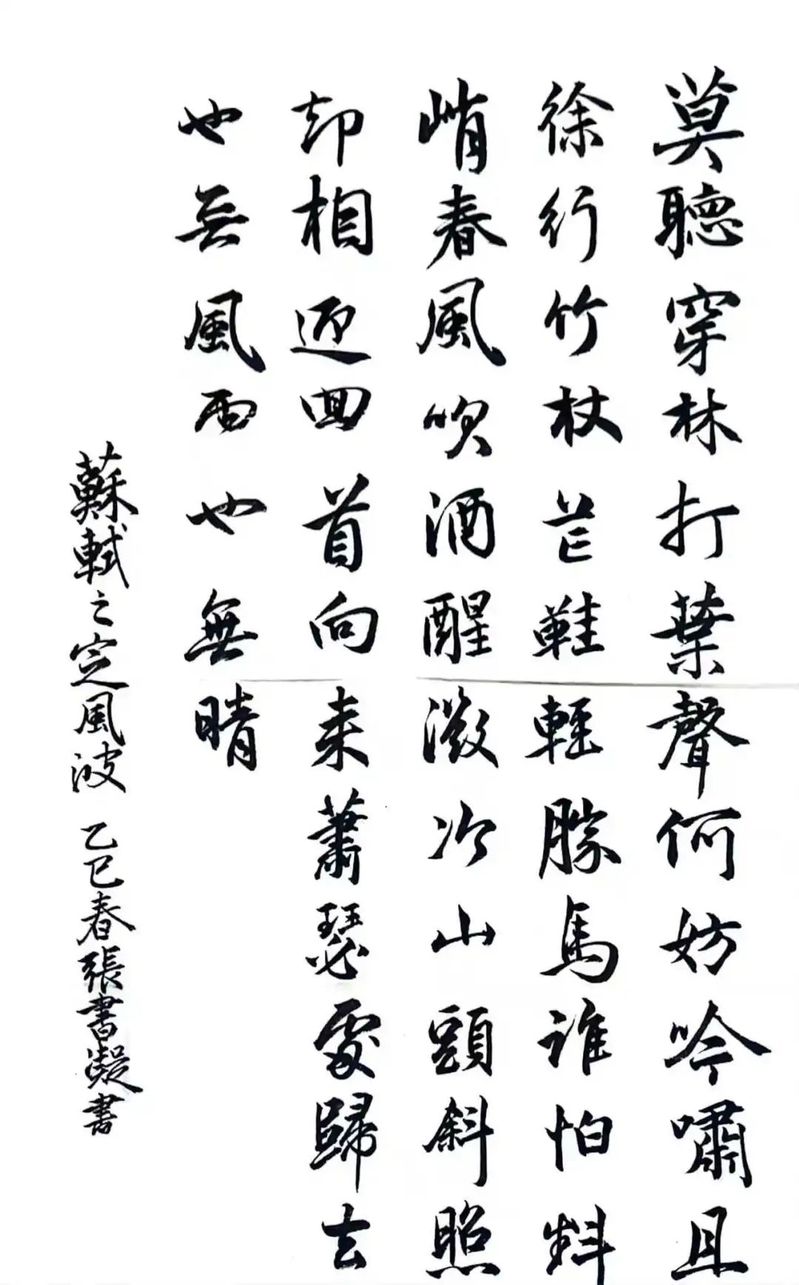 莫聽穿林打葉聲何妨吟嘯且
徐行竹杖芒鞋輕勝馬誰怕料
峭春風吹酒醒微冷山頭斜照
却相迎回首向来蕭瑟處歸去
也無風雨也無晴
蘇軾之定風波 乙巳春張書凝書